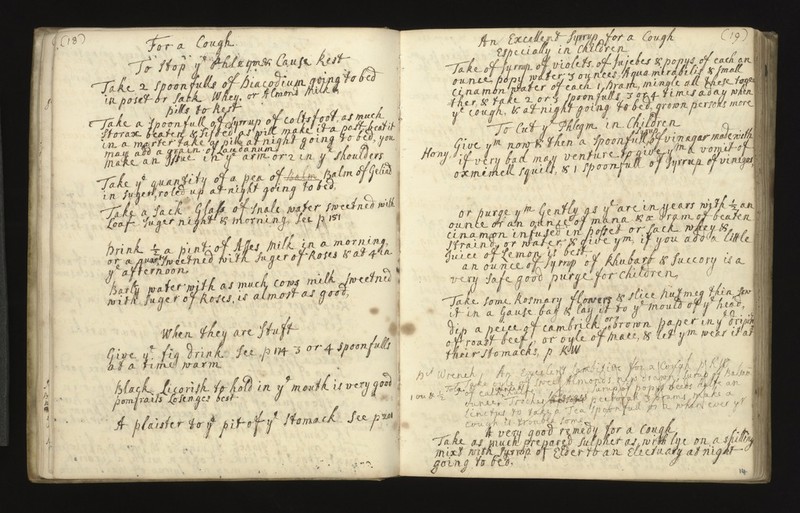 (18)
For a Cough
To Stop yᵉ Phlegm & Cause Rest
Take 2 spoonfulls of Diacodium going to bed
in poset or Sack Whey, or Almon Milk
pills to rest
Take a spoonfull of Syrup of Coltsfoot, as much
Storax beaten & sifted as will make it a past, beat it
in a morter take 9 pills at night going to bed, you
may add a grain of Laudanum
make an Issue in yᵉ arm or 2 in yᵉ Shoulders
Take yᵉ quantity of a pea of balm Balm of Gelied
in Suger, roled up at night going to bed.
Take a Sack Glass of Snale water sweetned with
Loaf Suger night & morning. See p 151
Drink ½ a pint of Asses milk in a morning
or a quart sweetned with Suger of Roses & at 4 in
yᵉ afternoon
Barly water with as much cows milk sweetned
with Suger of Roses, is almost as good,
When they are Stuft
Give yᵉ fig drink See p 174 3 or 4 spoonfulls
at a time warm
Black Licorish to hold in yᵉ mouth is very good
pomfraits Losenges best
A plaister to yᵉ pit of yᵉ Stomach See p 201
(19)
An Excellent Syrrup for a Cough
Especially in Children
Take of Syrup of violets, of Jujebes & popys of each an
ounce, popy water 3 ounces, Aqua mirabelis & small
Cinamon water of each 1 Dram, mingle all these toge
ther & take 2 or 3 spoonfulls 3 or 4 times a day when
yᵉ cough, & at night going to bed, grown persons more
To Cut yᵉ Phlegm in Children
Give yᵐ now & then a Spoonfull of Syrrup of vinagar made with
Hony, if very bad may venture to give yᵐ a vomit of
oxmimell squils, & 1 spoonfull of Syrrup of vinigar
or purge yᵐ Gently as yᵉ are in years with ½ an
ounce or an ounce of mana & a Dram of beaten
Cinamon infused in posset or sack whey &
Strained or water & give yᵐ, if you add a little
Juice of Lemon is best
an ounce of Syrup of Rhubarb & Succory is a
very safe good purge for Children
Take some Rosmary flowers & slice nutmeg thin sew
it in a Gause bag & lay it to yᵉ mould of yᵉ head,
dip a peice of cambrick or brown paper in yᵉ Dripin
of roast beef, or oyle of mace, & let yᵐ wear it at
their Stomachs, p KW
Dʳ Wrench, An Excelent for a Cough
Take Sweet Almonds new drawn Syrup of balsam
of each
an
Linctus to take a Tea spoonfull of it when ever yᵉ
cough is troublesome
A very good remedy for a Cough
Take as much prepared Sulpher as, with lye on a shilling
mixt with Syrrup of Elder to an Electuary at night
going to bed.